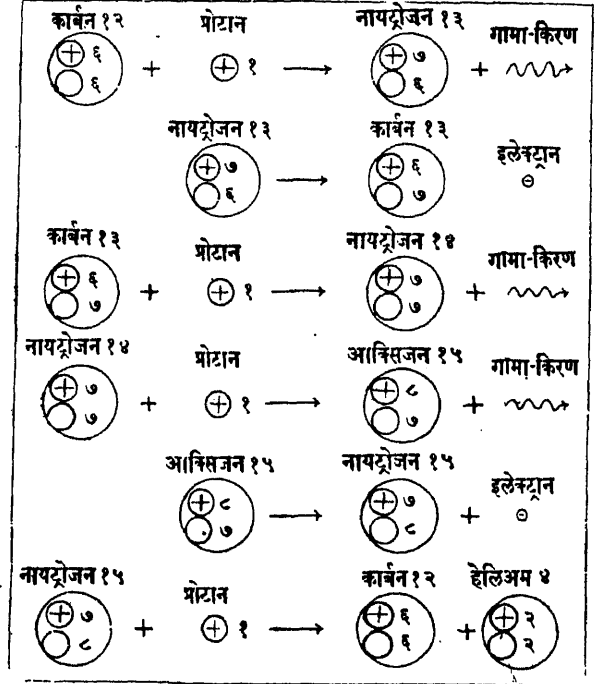 कार्बन १२ प्रोटान नायट्रोजन १३ गामा-किरण
६ + १ ७ +
६ ६
नायट्रोजन १३ कार्बन १३ इलेक्ट्रान
७ ६
६ ७
कार्बन १३ प्रोटान नायट्रोजन १४ गामा-किरण
६ + १ ७ +
७ ७
नायट्रोजन १४ प्रोटान आक्सिजन १५ गामा-किरण
७ + १ ८ +
७ ७
आक्सिजन १५ नायट्रोजन १५ इलेक्ट्रान
८ ७ +
७ ८
नायट्रोजन १५ प्रोटान कार्बन १२ हेलिअम ४
७ + १ ६ + २
८ ६ २